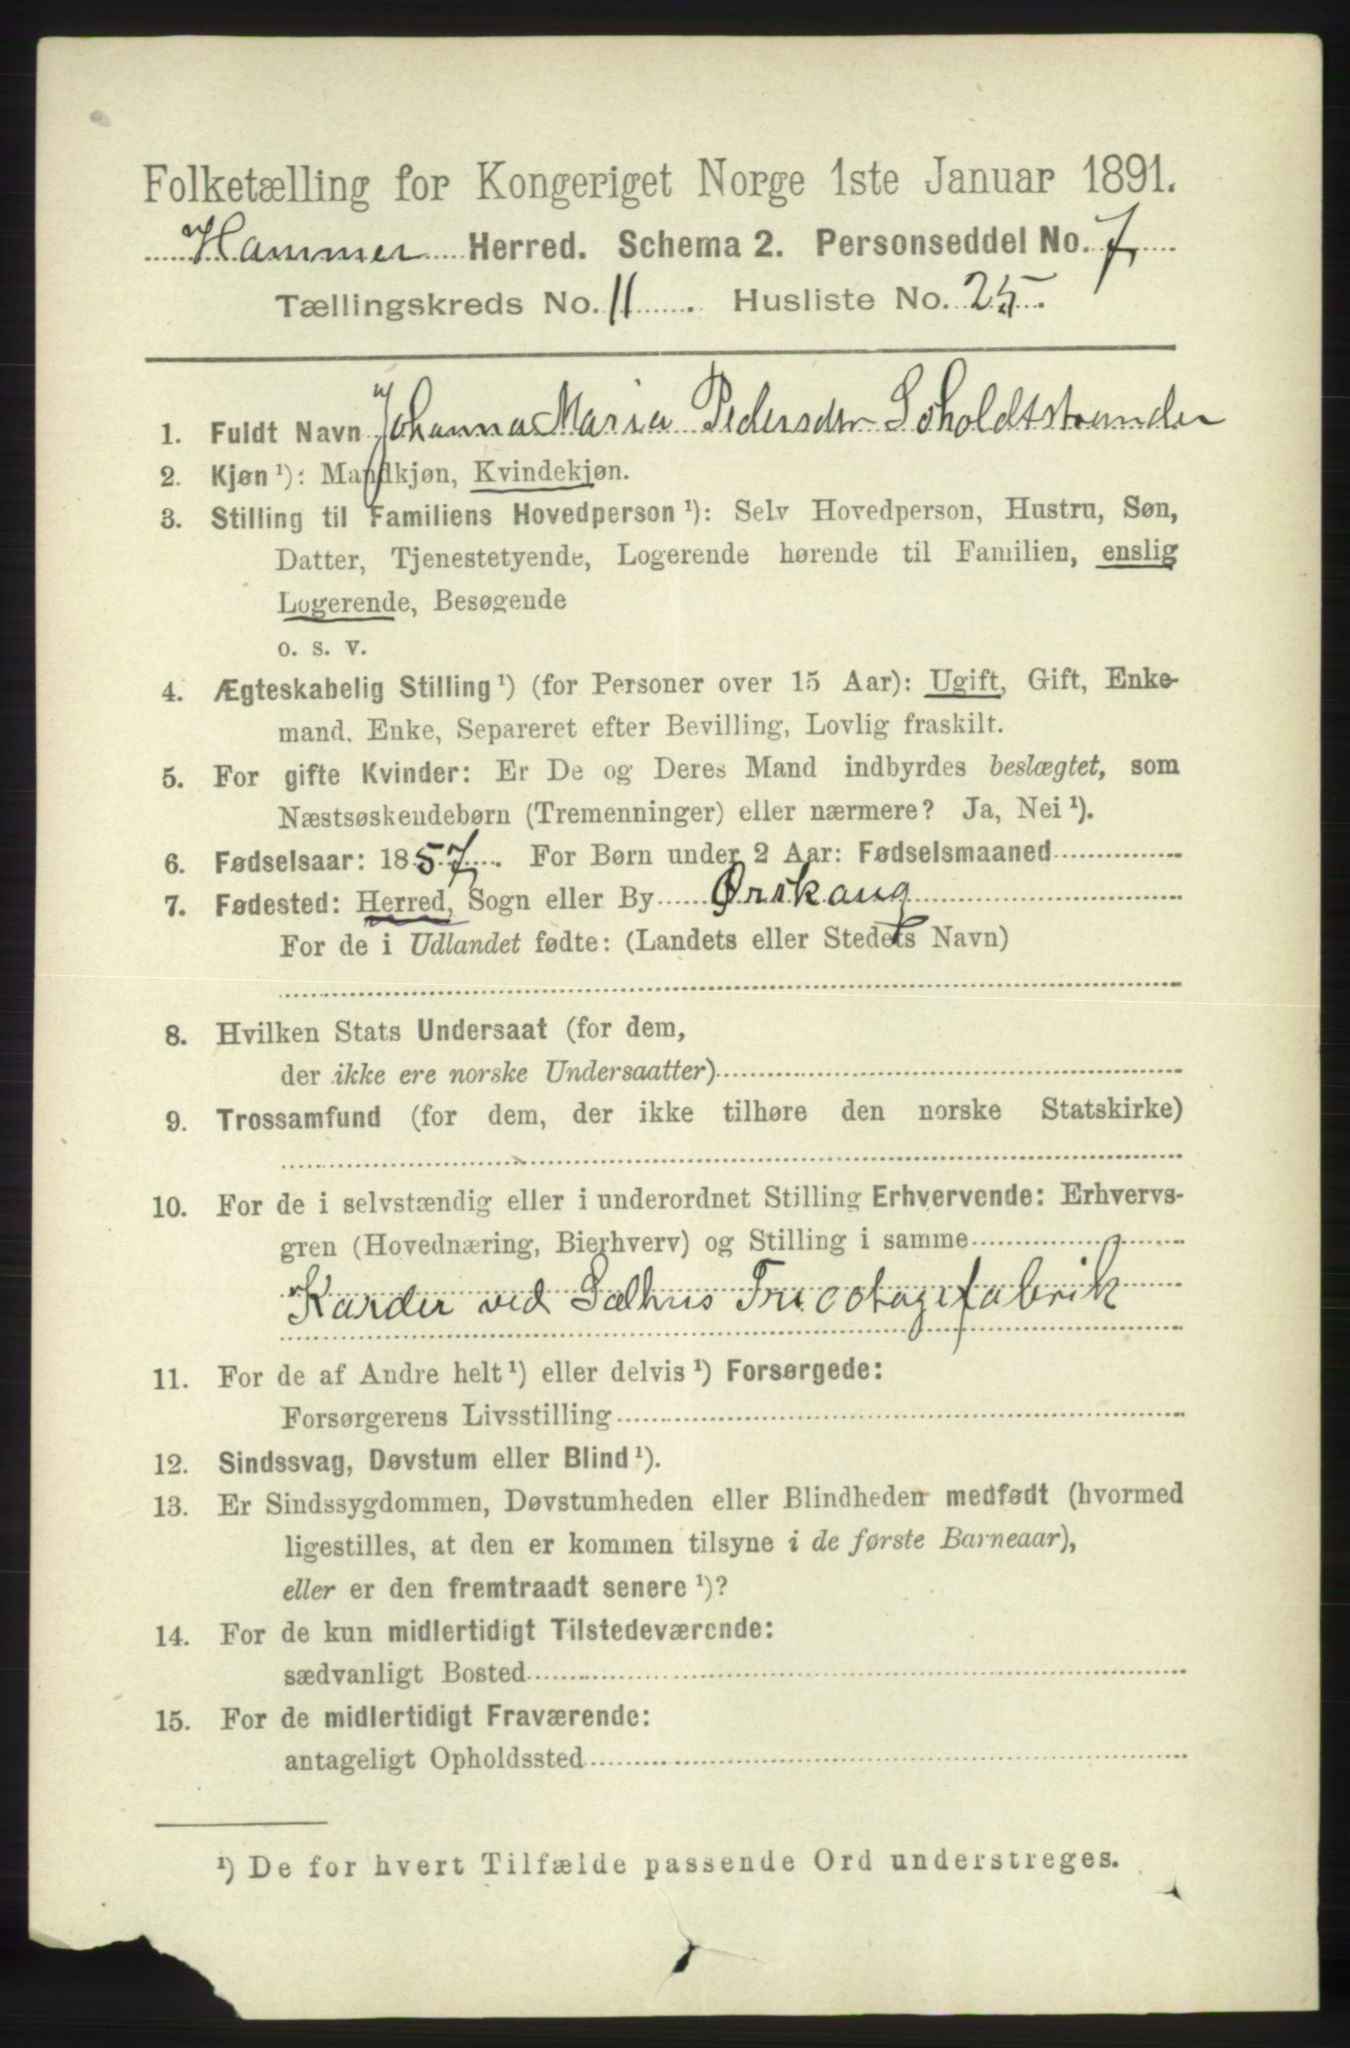 Folketælling for Kongeriget Norge 1ste Januar 1891.
Hammer Herred. Schema 2. Personseddel No. 7
Tællingskreds No. 11. Husliste No. 25.
1. Fuldt Navn Johanna Maria Pedersden Soholdtstranden
2. Kjøn ¹): Mandkjøn, Kvindekjøn.
3. Stilling til Familiens Hovedperson ¹): Selv Hovedperson, Hustru, Søn,
Datter, Tjenestetyende, Logerende hørende til Familien, enslig
Logerende, Besøgende
o. s. v.
4. Ægteskabelig Stilling ¹) (for Personer over 15 Aar): Ugift, Gift, Enke-
mand. Enke, Separeret efter Bevilling, Lovlig fraskilt.
5. For gifte Kvinder: Er De og Deres Mand indbyrdes beslægtet, som
Næstsøskendebørn (Tremenninger) eller nærmere? Ja, Nei ¹).
6. Fødselsaar: 1857. For Børn under 2 Aar: Fødselsmaaned
7. Fødested: Herred, Sogn eller By Ørskaug
For de i Udlandet fødte: (Landets eller Stedets Navn)
8. Hvilken Stats Undersaat (for dem,
der ikke ere norske Undersaatter)
9. Trossamfund (for dem, der ikke tilhøre den norske Statskirke)
10. For de i selvstændig eller i underordnet Stilling Erhvervende: Erhvervs-
gren (Hovednæring, Bierhverv) og Stilling i samme
Karder ved Salhus Tricotagefabrik
11. For de af Andre helt ¹) eller delvis ¹) Forsørgede:
Forsørgerens Livsstilling
12. Sindssvag, Døvstum eller Blind ¹).
13. Er Sindssygdommen, Døvstumheden eller Blindheden medfødt (hvormed
ligestilles, at den er kommen tilsyne i de første Barneaar),
eller er den fremtraadt senere ¹)?
14. For de kun midlertidigt Tilstedeværende:
sædvanligt Bosted
15. For de midlertidigt Fraværende:
antageligt Opholdssted
¹) De for hvert Tilfælde passende Ord understreges.